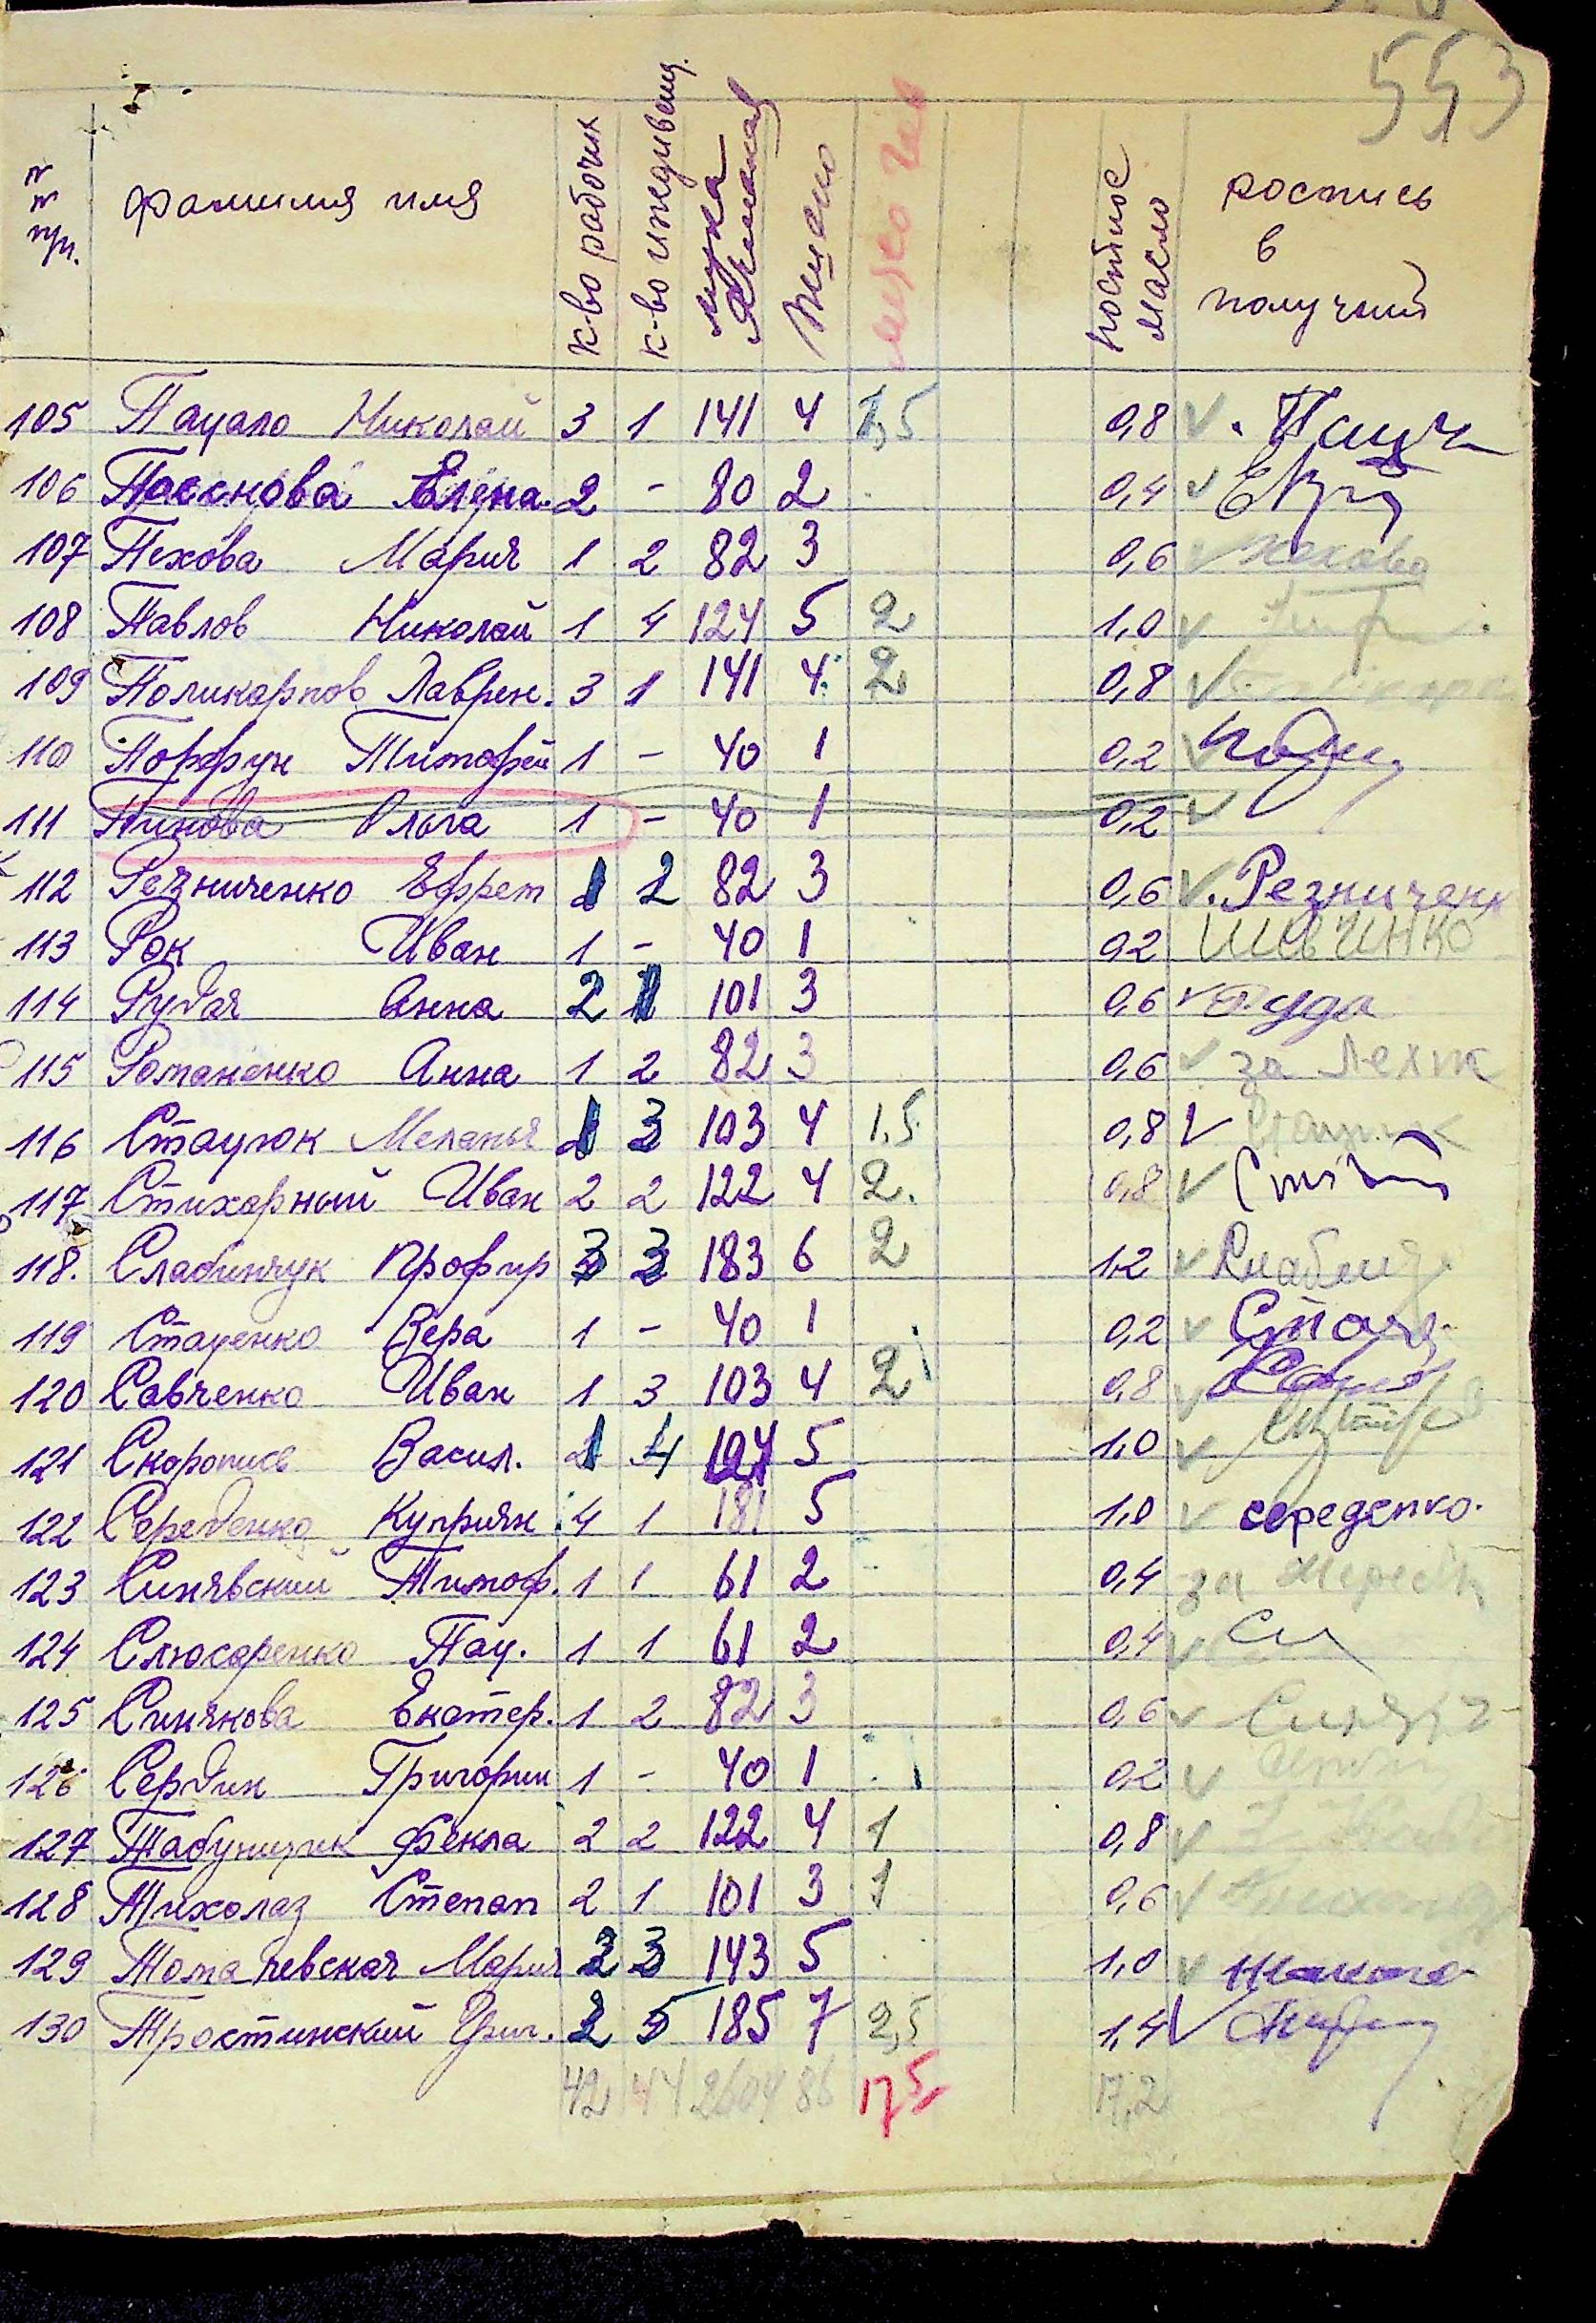 553
№ № п/п. фамилия имя к-во рабочих к-во иждивенц. мука Ячменная Пшено мясо постное масло роспись в получении
105 Пацало Николай 3 1 141 4 1,5 0,8 ✓
106 Пасснова Елена. 2 - 80 2 0,4 ✓
107 Пехова Мария 1 2 82 3 0,6 ✓ Пехова
108 Павлов Николай 1 4 124 5 2 1,0 ✓
109 Поликарпов Лаврен. 3 1 141 4 2 0,8 ✓
110 Порфун Тимофей 1 - 40 1 0,2 ✓
111 Пинова Ольга 1 - 40 1 0,2 ✓
112 Резниченко Ефрем 1 2 82 3 0,6 ✓ Резниченк
113 Рок Иван 1 - 40 1 0,2 ШЕВЧИНКО
114 Рудая Анна 2 1 101 3 0,6 ✓ Руда
115 Романенко Анна 1 2 82 3 0,6 ✓ за
116 Стацюк Меланья 1 3 103 4 1,5 0,8 ✓
117 Стихарный Иван 2 2 122 4 2. 0,8 ✓
118. Слабинчук Профир 3 3 183 6 2 1,2 ✓
119 Стаценко Вера 1 - 40 1 0,2 ✓
120 Савченко Иван 1 3 103 4 2 0,8 ✓
121 Скоропись Васил. 1 4 124 5 1,0 ✓
122 Середенко Куприян 4 1 181 5 1,0 ✓ середенко.
123 Синявский Тимоф. 1 1 61 2 0,4 за
124 Слюсаренко Пац. 1 1 61 2 0,4 ✓
125 Синякова Екатер. 1 2 82 3 0,6 ✓
126 Сердик Григории 1 - 40 1 0,2 ✓
127 Табунщик Фекла 2 2 122 4 1 0,8 ✓
128 Тихолаз Степан 2 1 101 3 1 0,6 ✓
129 Томачевская Мария 2 3 143 5 1,0 ✓
130 Тростинский Григ. 2 5 185 7 2,5 1,4 ✓
42 44 2604 86 17,5 17,2